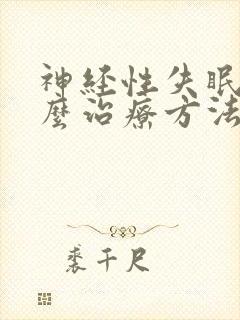 神经性失眠
麼治療方法
裘千尺